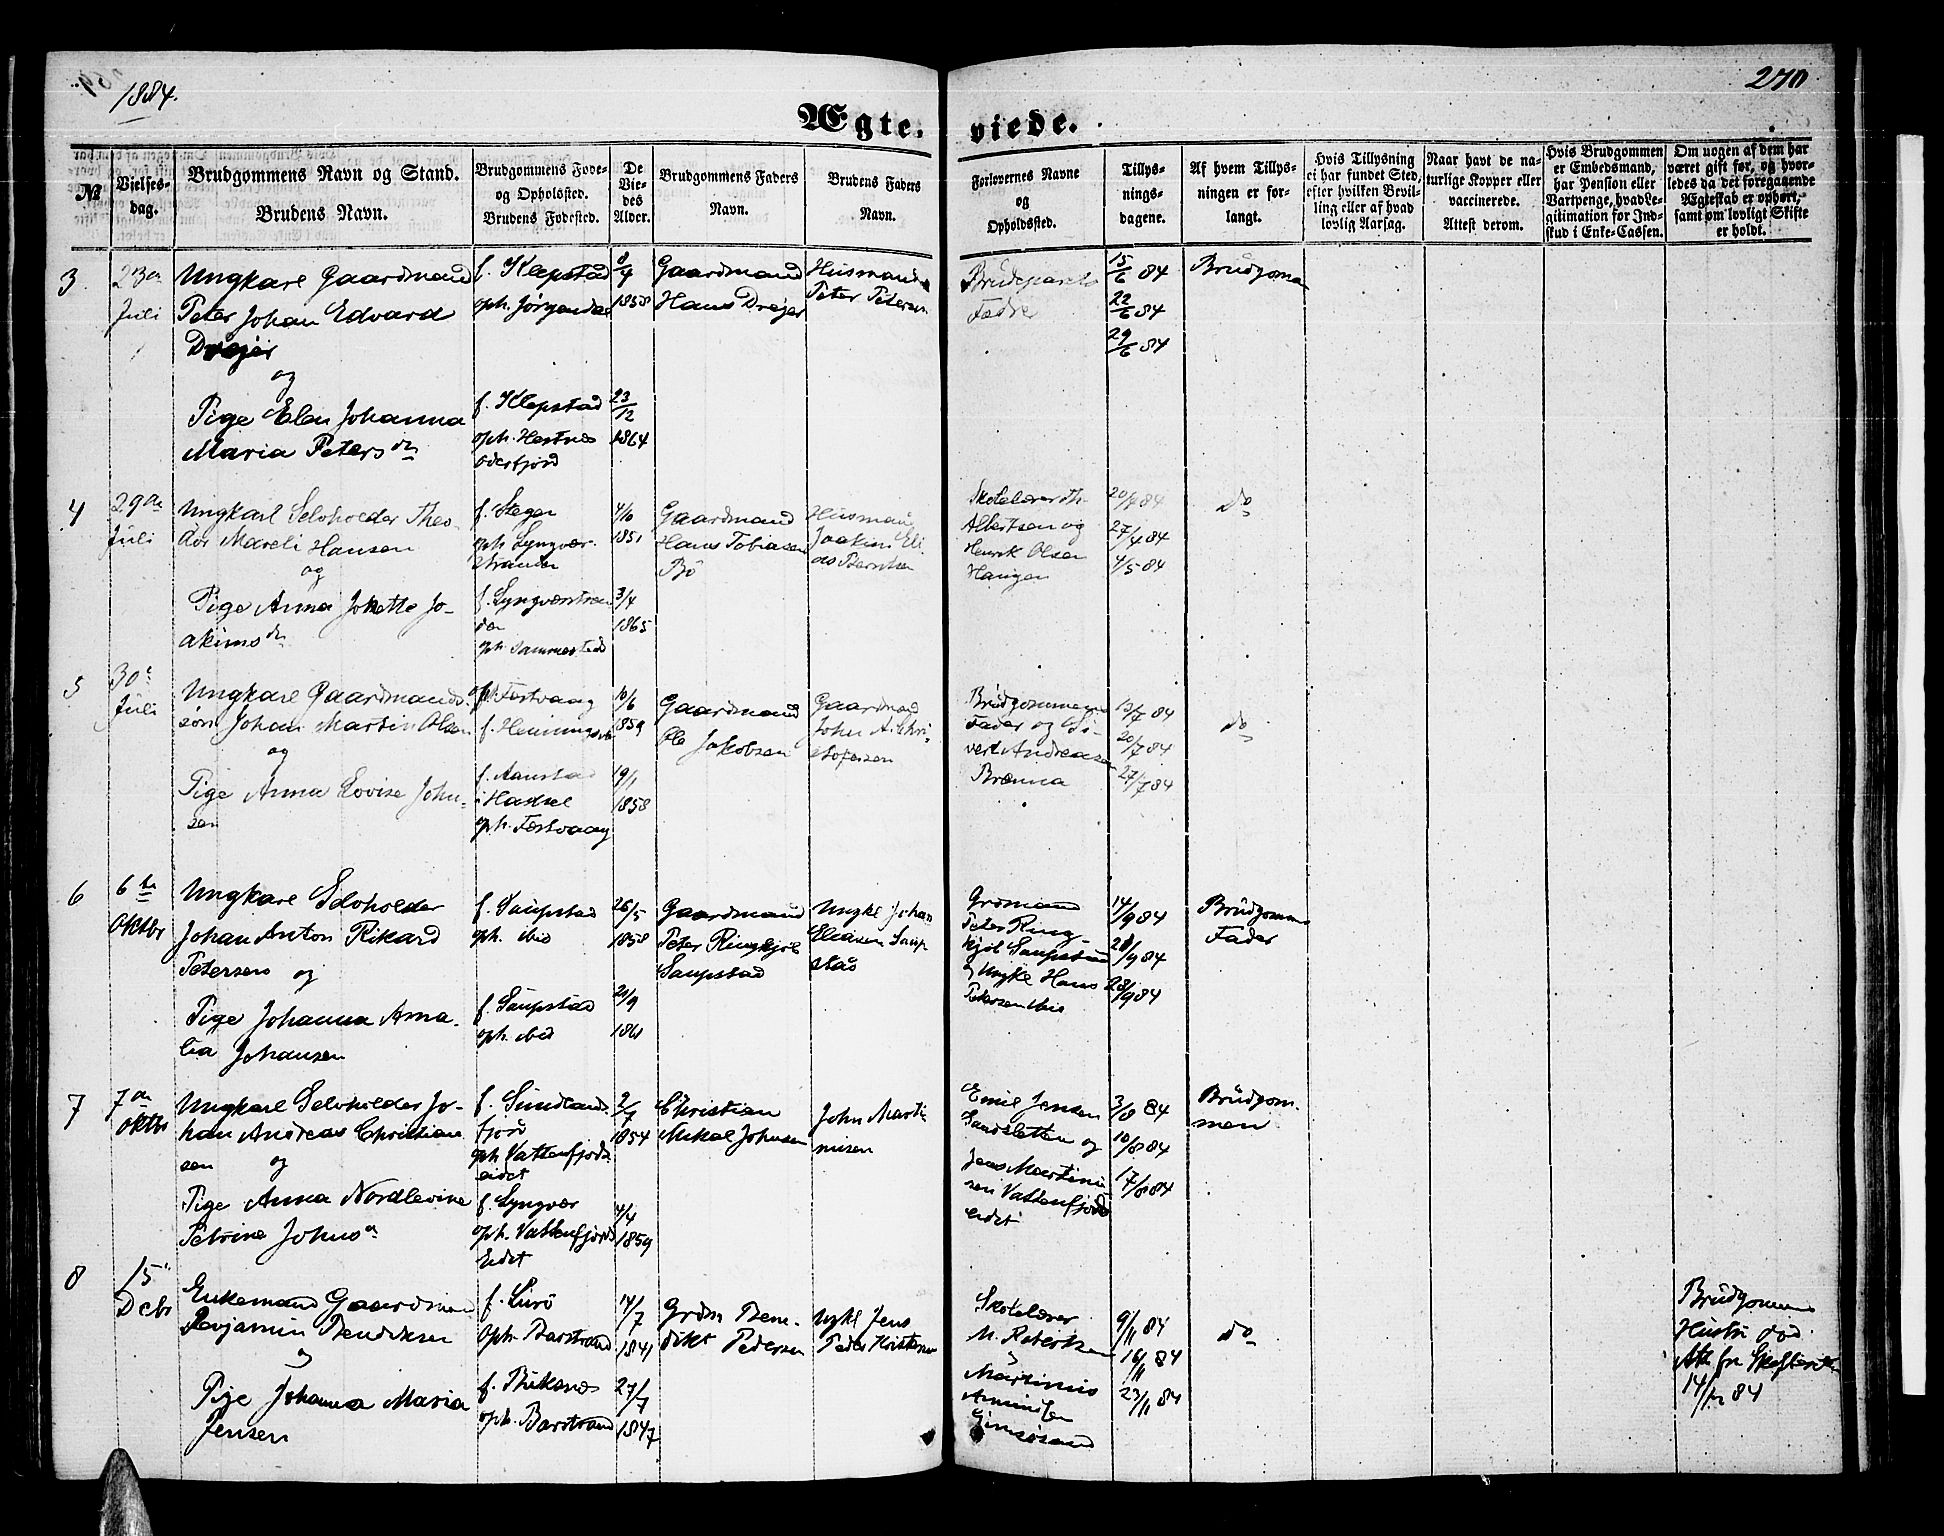 1884.
270
Ægte. viede.
№
Vielses-
dag.
Brudgommens Navn og Stand.
Brudens Navn.
Brudgommens Føde-
og Opholsted.
Brudens Fødested.
De
Vie-
des
Alder.
Brudgommens Faders
Navn.
Brudens Faders
Navn.
Forlovernes Navne
og
Opholdsted.
Tillys-
nings-
dagene.
Af hvem Tillys-
ningen er for-
langt.
Hvis Tillysning
ei har fundet Sted,
efter hvilken Bevil-
ling eller af hvad
lovlig Aarsag.
Naar havt de na-
turlige Kopper eller
vaccinerede.
Attest derom.
Hvis Brudgommen
er Embedsmand,
har Pension eller
Vartpenge, hvad Le-
gitimation for Ind-
skud i Enke-Cassen.
Om nogen af dem har
været gift før, og hvor-
ledes da det foregaaende
Ægteskab er ophørt,
samt om lovligt Skifte
er holdt.
3
23de
Juli
Ungkarl Gaardmand
Peter Johan Edvard
Drejer
og
Pige Elen Johanna
Maria Petersdn
f. Klepstad
oph. Jørgendal
f. Klepstad
oph. Hestnes
Østerfjord
1858
23/12
1864
Gaardmand
Hans Drejer
Husmand
Peter Petersen
Brudeparets
Fædre
15/6 84
22/6 84
29/6 84
Brudgom
4
29de
Juli
Ungkarl Selvholder Theo-
dor Mareli Hansen
og
Pige Anna Johette Jo-
akimsdn
f. Steger
oph. Lyngvær-
stranden
f. Lyngværstran
den
oph. Sammesteds
4/10
1851
3/4
1865
Gaardmand
Hans Tobiassen
Bø
Husmand
Joakim Eli
as Berntsen
Skolelærer Th.
Albertsen og
Henrik Olsen
Haugen
20/4 84
27/4 84
4/5 84
do
5
30te
Juli
Ungkarl Gaardmands-
søn Johan Martin Olsen
og
Pige Anna Lovise John-
sen
oph. Festvaag
f. Henningsvær
f. Aanstad
i Hadsel
oph. Festvaag
10/6
1859
19/1
1858
Gaardmand
Ole Jakobsen
Gaardmand
John A. Chri-
stofersen
Brudgommens
Fader og Si-
vert Andreasen
Brenna
13/7 84
20/7 84
27/7 84
do
6
6te
Oktbr
Ungkarl Selvholder
Johan Anton Rikard
Petersen og
Pige Johanna Ama-
lia Johansen
f. Saupstad
oph. ibid
f. Saupstad
oph. ibid
26/5
1858
20/9
1861
Gaardmand
Peter Ringkjøb
Saupstad
Ungkl Johan
Eliasen Saup
stad
Grdmand
Peter Ring-
kjøb Saupstad
og Ungkl Hans
Petersen ibid
14/9 84
21/9 84
28/9 84
Brudgommens
Fader
7
7de
Oktbr
Ungkarl Selvholder Jo-
han Andreas Christian
sen og
Pige Anna Nordlevine
Petrine Johnsd
f. Sundlands
fjord
oph. Vattenfjords
eidet
f. Lyngvær
oph. Vattenfjords
Eidet
2/7
1854
4/4
1859
Christian
Mikal Johnsen
John Marti
nusen
Emil Jensen
Sandsletten og
Jens Martinu
sen Vattenfjords
eidet
3/8 84
10/8 84
17/8 84
Brudgom-
men
8
15
Decbr
Enkemand Gaardmand
Benjamin Bendiksen
og
Pige Johanna Maria
Jensen
f. Lurø
oph. Barstrand
oph. Barstrand
14/7
1841
27/7
1847
Grdm Ben-
dikt Pedersen
Ungkl Jens
Peder Kristensen
Skolelærer
M. Robertsen
og
Martinus
9/11 84
16/11 84
23/11 84
do
Brudgommens
Hustru død
14/12 84